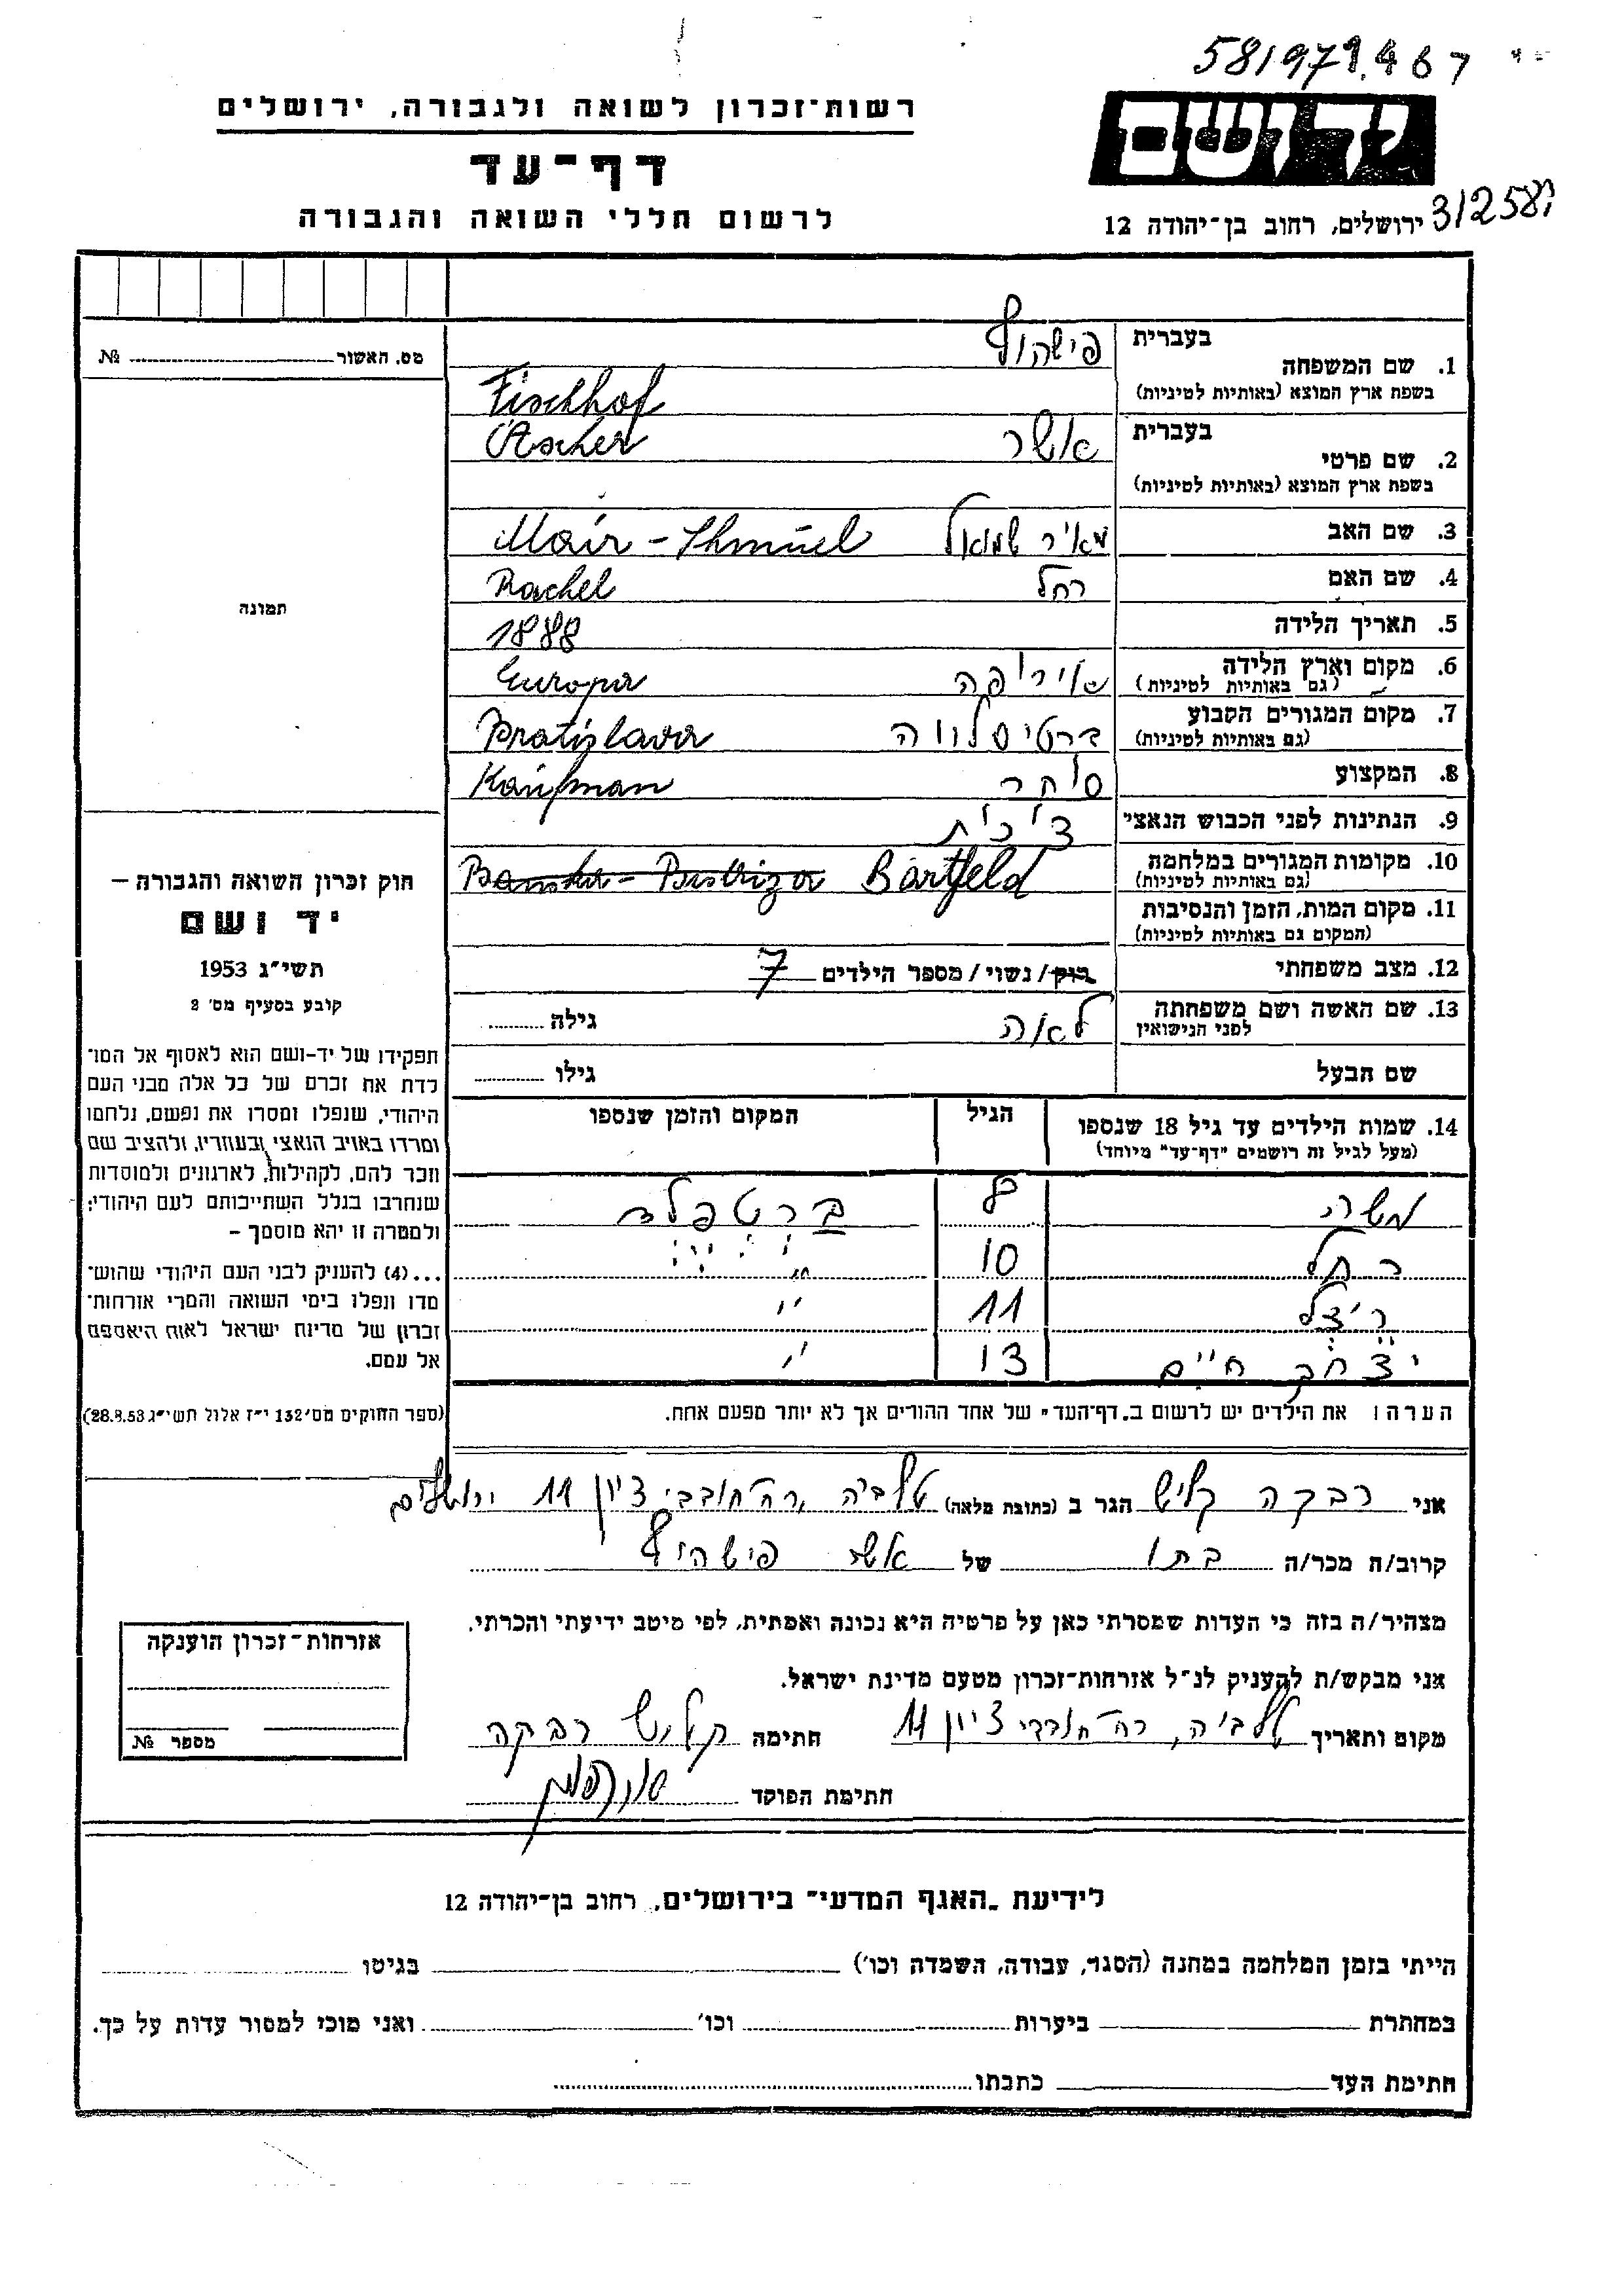 581979.467
רשות־זכרון לשואה ולגבורה, ירושלים
יד ושם
דף־עד
לרשום חללי השואה והגבורה
ירושלים, רחוב בן־יהודה 12
312581
מס. האשור № 
בעברית
פישהוף
1. שם המשפחה
בשפת ארץ המוצא (באותיות לטיניות)
Fischhof
בעברית
אשר
Ascher
2. שם פרטי
בשפת ארץ המוצא (באותיות לטיניות)
3. שם האב
מאיר שמואל
Mair - Shmuel
4. שם האם
רחל
Rachel
5. תאריך הלידה
1888
6. מקום וארץ הלידה
(גם באותיות לטיניות)
אירופה
Europa
7. מקום המגורים הקבוע
(גם באותיות לטיניות)
ברטיסלווה
Bratislava
8. המקצוע
סוחר
Kaufman
9. הנתינות לפני הכבוש הנאצי
צ'כית
10. מקומות המגורים במלחמה
(גם באותיות לטיניות)
Bartfeld
11. מקום המות, הזמן והנסיבות
(המקום גם באותיות לטיניות)
12. מצב משפחתי
רוק / נשוי / מספר הילדים 7
13. שם האשה ושם משפחתה
לפני הנישואין
לאה
גילה
שם הבעל
גילו
תמונה
חוק זכרון השואה והגבורה –
יד ושם
תשי"ג 1953
קובע בסעיף מס' 2
תפקידו של יד-ושם הוא לאסוף אל המו־
לדת את זכרם של כל אלה מבני העם
היהודי, שנפלו ומסרו את נפשם, נלחמו
ומרדו באויב הנאצי ובעוזריו, ולהציב שם
וזכר להם, לקהילות, לארגונים ולמוסדות
שנחרבו בגלל השתייכותם לעם היהודי;
ולמטרה זו יהא מוסמך –
...(4) להעניק לבני העם היהודי שהוש־
מדו ונפלו בימי השואה והמרי אזרחות־
זכרון של מדינת ישראל לאות היאספם
אל עמם.
(ספר החוקים מס' 132 י"ז אלול תשי"ג 28.8.53)
14. שמות הילדים עד גיל 18 שנספו
(מעל לגיל זה רושמים "דף־עד" מיוחד)
הגיל
המקום והזמן שנספו
משה 8 ברטפלד
רחל 10 " "
ריצל 11 "
יצחק חיים 13 "
הערה: את הילדים יש לרשום ב"דף־העד" של אחד ההורים אך לא יותר מפעם אחת.
אני רבקה קליש הגר ב (כתובת מלאה) טלביה, רח' חובבי ציון 11 ירושלים
קרוב/ה מכר/ה בתו של אשר פישהוף
מצהיר/ה בזה כי העדות שמסרתי כאן על פרטיה היא נכונה ואמתית, לפי מיטב ידיעתי והכרתי.
אני מבקש/ת להעניק לנ"ל אזרחות־זכרון מטעם מדינת ישראל.
מקום ותאריך טלביה, רח' חובבי ציון 11 חתימה קליש רבקה
חתימת הפוקד
אזרחות־זכרון הוענקה
מספר №
לידיעת "האגף המדעי" בירושלים, רחוב בן־יהודה 12
הייתי בזמן המלחמה במחנה (הסגר, עבודה, השמדה וכו') בגיטו
במחתרת ביערות וכו' ואני מוכן למסור עדות על כך.
חתימת העד כתבתו